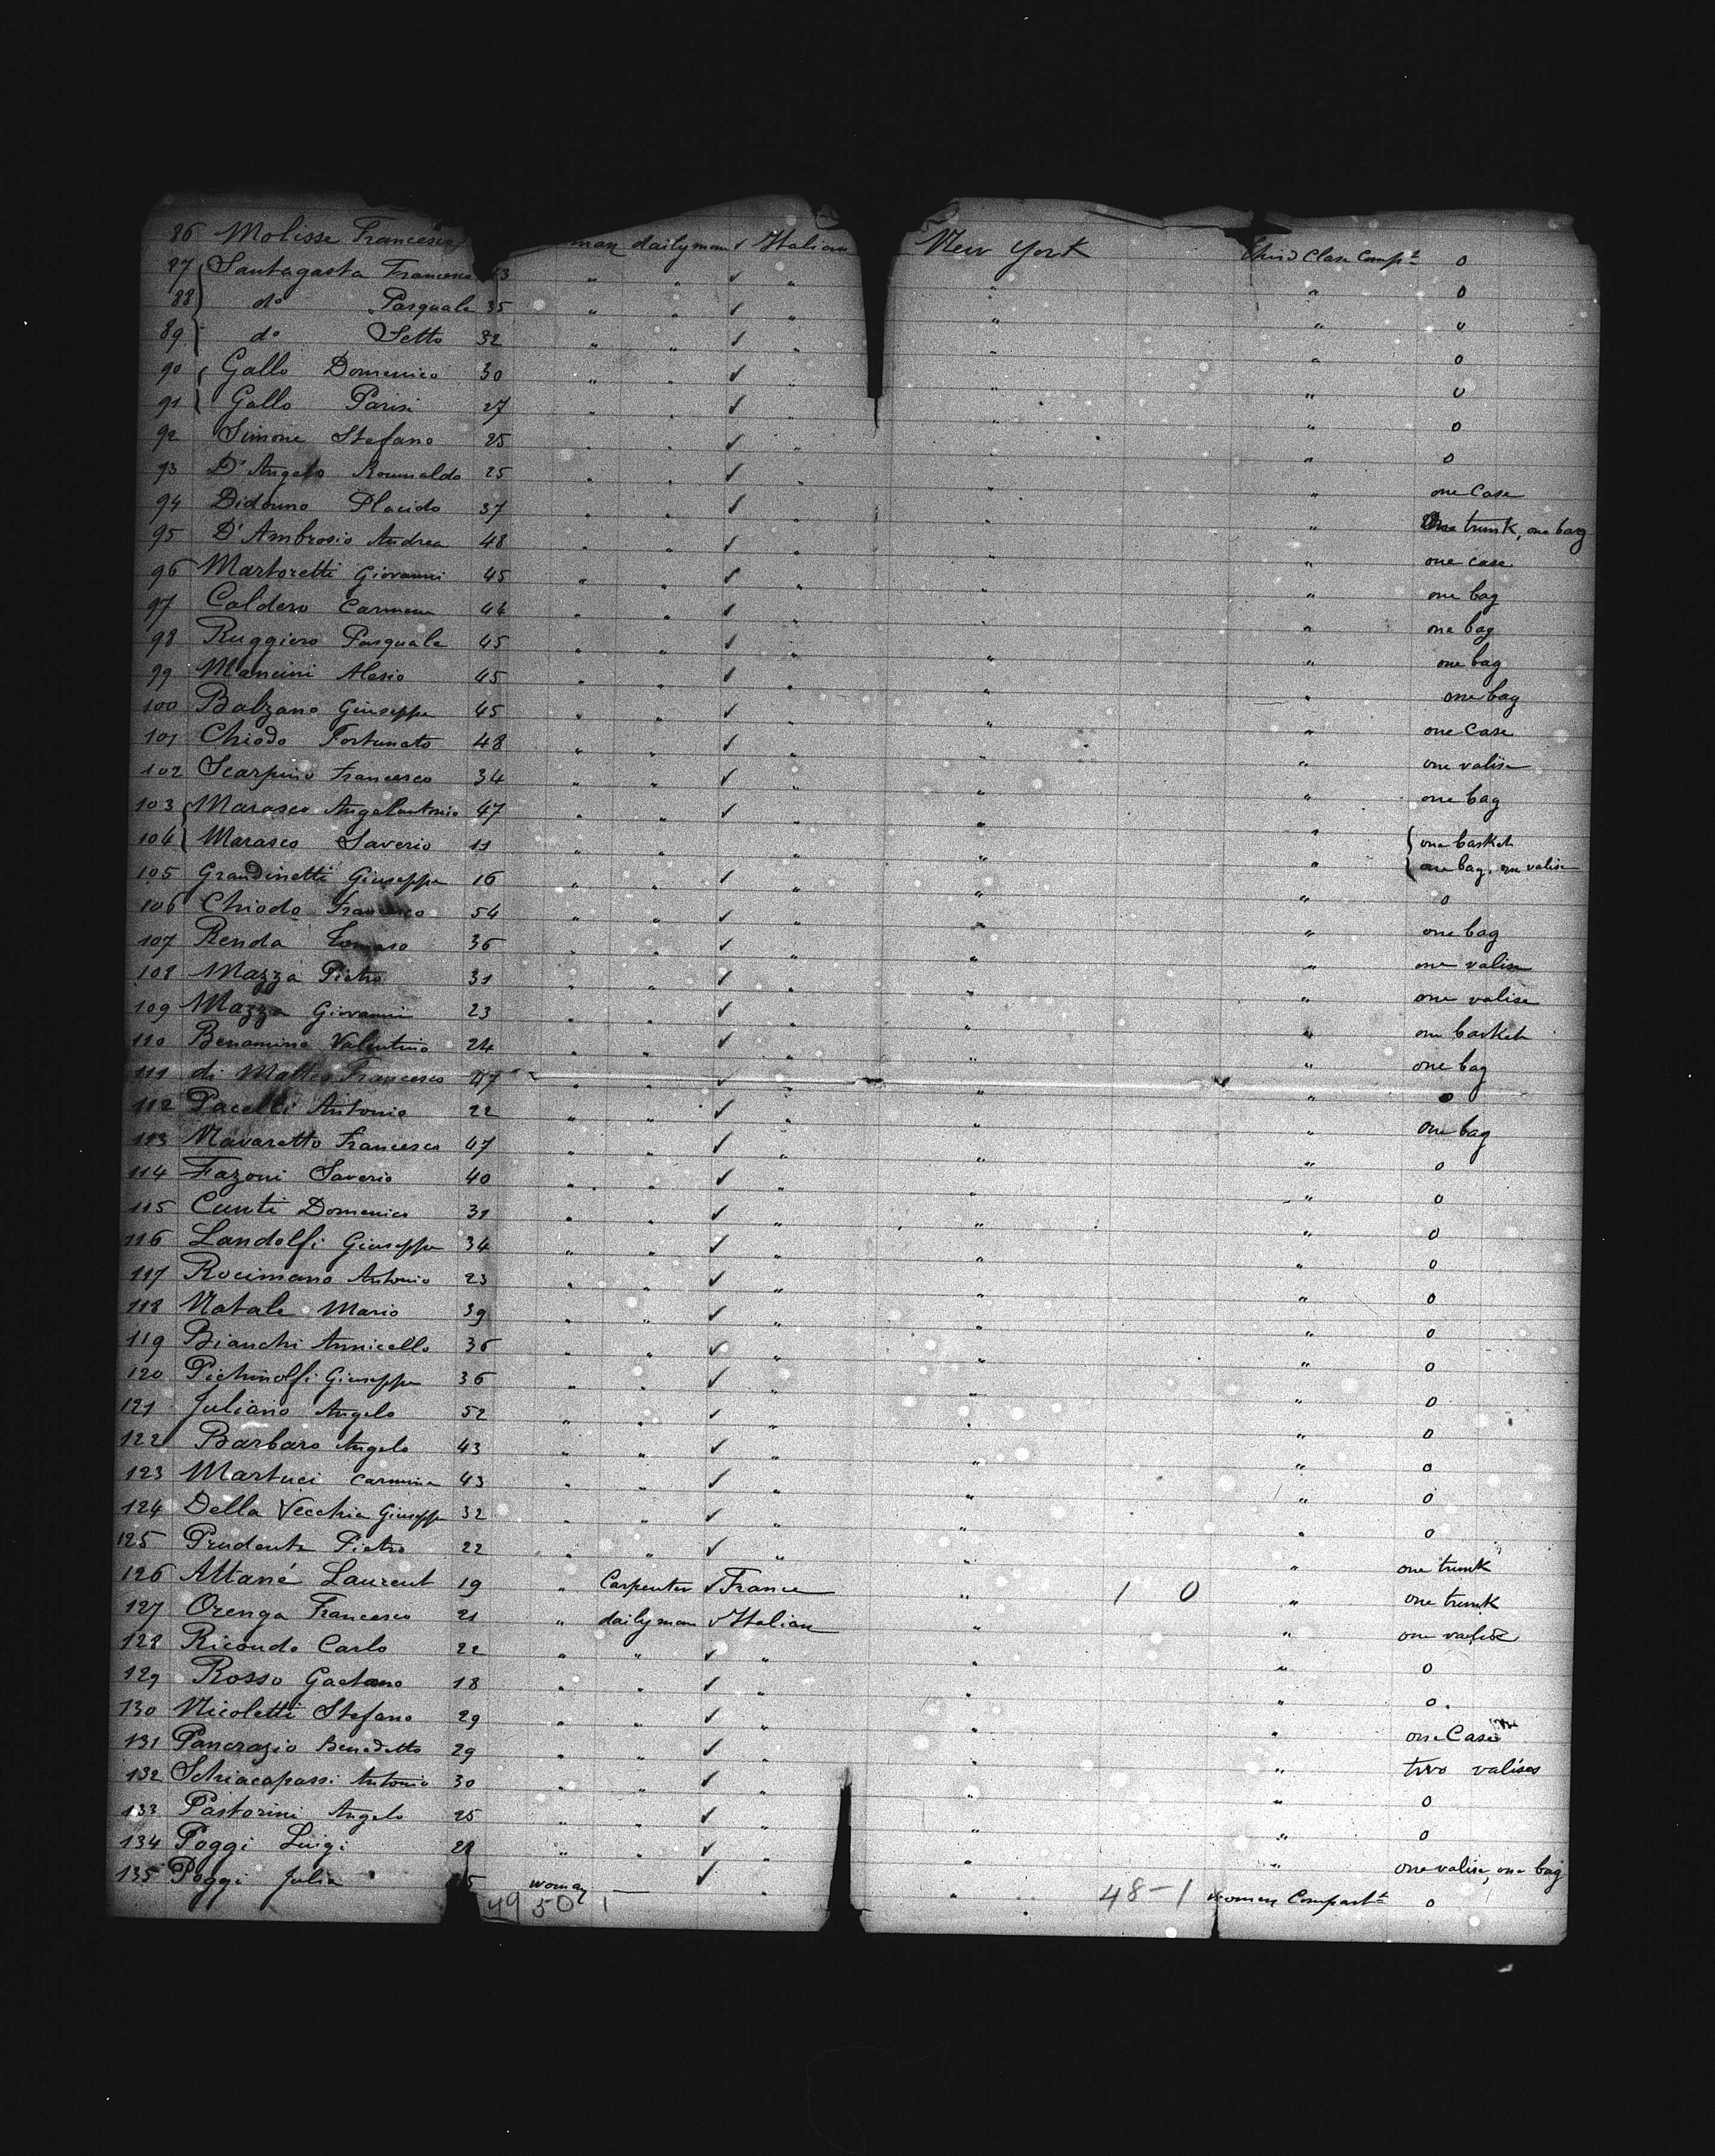 86 Molisse Francesco man dailyman ✓ Italian New York Third Class Compt 0
87 Santagasta Francesco 43 " " ✓ " " " 0
88 do Pasquale 35 " " ✓ " " " 0
89 do Setto 32 " " ✓ " " " 0
90 Gallo Domenico 30 " " ✓ " " " 0
91 Gallo Parisi 27 " " ✓ " " " 0
92 Simone Stefano 25 " " ✓ " " " 0
93 D'Angelo Romualdo 25 " " ✓ " " " one case
94 Didonno Placido 37 " " ✓ " " " One trunk, one bag
95 D'Ambrosio Andrea 48 " " ✓ " " " one case
96 Martoretti Giovanni 45 " " ✓ " " " one bag
97 Caldero Carmen 44 " " ✓ " " " one bag
98 Ruggiero Pasquale 45 " " ✓ " " " one bag
99 Mancini Alesio 45 " " ✓ " " " one bag
100 Balzano Giuseppe 45 " " ✓ " " " one case
101 Chiodo Fortunato 48 " " ✓ " " " one valise
102 Scarpino Francesco 34 " " ✓ " " " one bag
103 Marasco Angelantonio 47 " " ✓ " " " one basket
104 Marasco Saverio 11 " " " " " one bag, one valise
105 Grandinetti Giuseppe 16 " " ✓ " " " 0
106 Chiodo Francesco 54 " " ✓ " " " one bag
107 Renda Tomaso 36 " " ✓ " " " one valise
108 Mazza Pietro 31 " " ✓ " " " one valise
109 Mazza Giovanni 23 " " ✓ " " " one basket
110 Benamino Valentino 24 " " ✓ " " " one bag
111 di Matteo Francesco 47 " " ✓ " " " 0
112 Pacelli Antonio 22 " " ✓ " " " one bag
113 Navaretto Francesco 47 " " ✓ " " " 0
114 Fazoni Saverio 40 " " ✓ " " " 0
115 Cunti Domenico 31 " " ✓ " " " 0
116 Landolfi Giuseppe 34 " " ✓ " " " 0
117 Rocimano Antonio 23 " " ✓ " " " 0
118 Natale Mario 39 " " ✓ " " " 0
119 Bianchi Annicello 36 " " ✓ " " " 0
120 Pichinolfi Giuseppe 36 " " ✓ " " " 0
121 Juliano Angelo 52 " " ✓ " " " 0
122 Barbaro Angelo 43 " " ✓ " " " 0
123 Martuci Carmina 43 " " ✓ " " " 0
124 Della Vecchia Giuseppe 32 " " ✓ " " " 0
125 Prudente Pietro 22 " " ✓ " " " one trunk
126 Attané Laurent 19 " Carpenter ✓ France " 1 0 " one trunk
127 Orenga Francesco 21 " dailyman ✓ Italian " " one valise
128 Ricondo Carlo 22 " " ✓ " " " 0
129 Rosso Gaetano 18 " " ✓ " " " 0
130 Nicoletti Stefano 29 " " ✓ " " " one Case
131 Pancrazio Benedetto 29 " " ✓ " " " two valises
132 Schiacapassi Antonio 30 " " ✓ " " " 0
133 Pastorini Angelo 25 " " ✓ " " " 0
134 Poggi Luigi " " ✓ " " " one valise, one bag
135 Poggi Julia woman — ✓ " " women Compartt 0
49 50 1 48-1